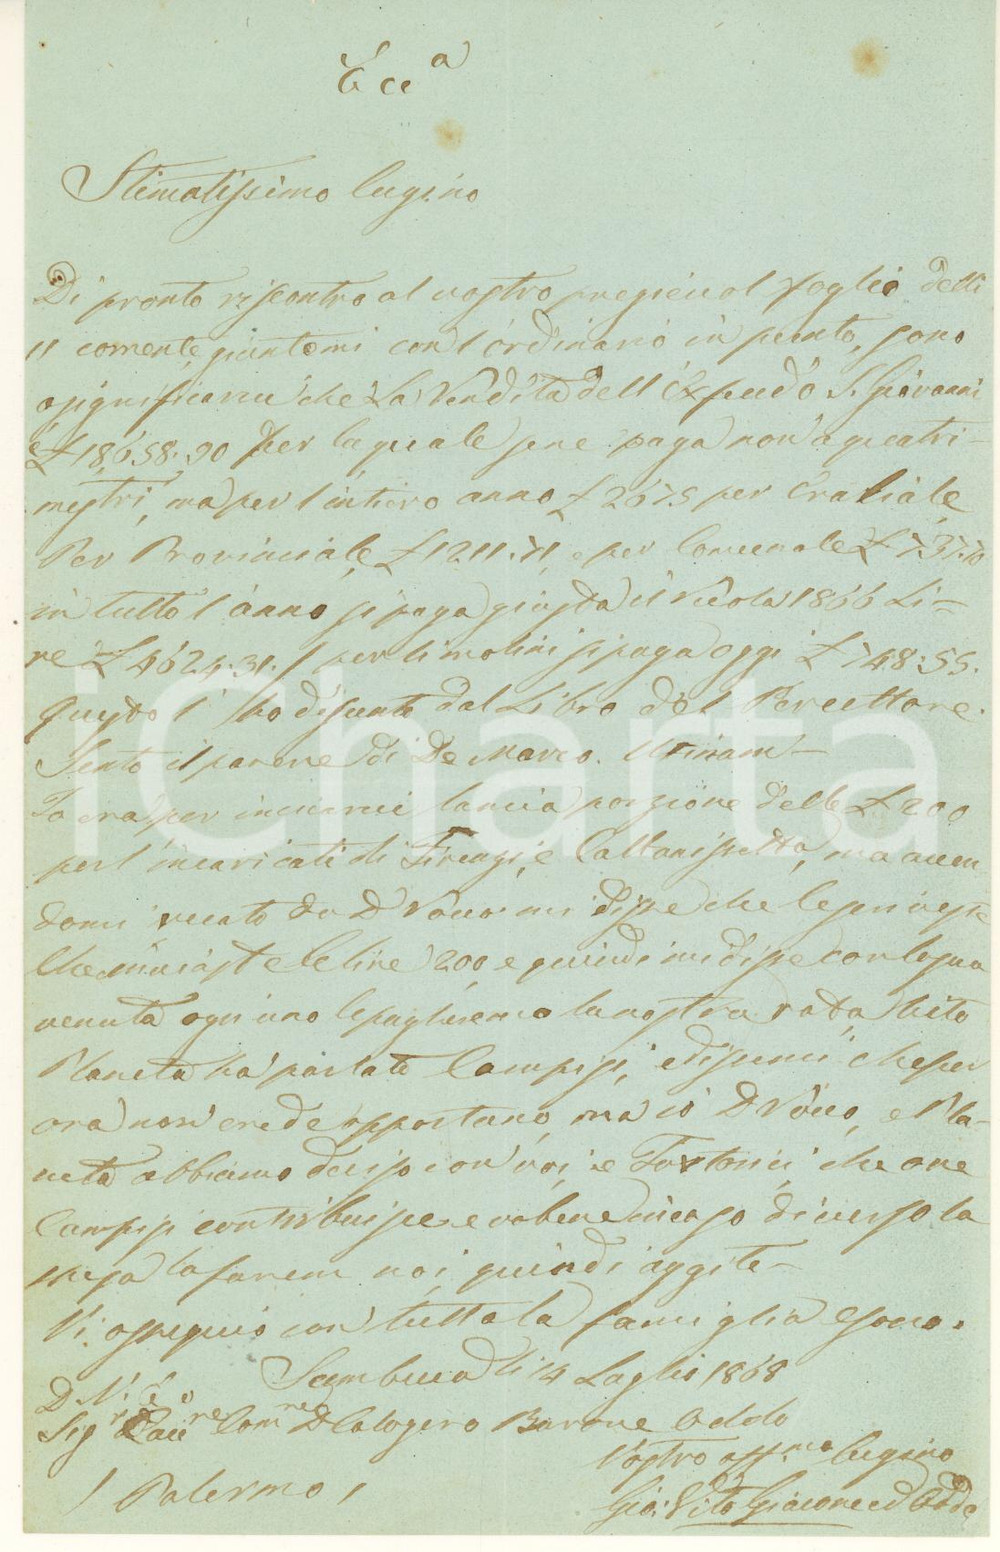 Ecc.a
Stimatissimo Cugino
Di pronto riscontro al vostro foglio delli
11 corrente, giuntomi con l'ordinario in punto, sono
a significarvi che la Vendita dell'Exfeudo S. Giovanni
è £ 18658:90 per la quale si ne paga non a quatri-
mestri, ma per l'intiero anno £ 2675 per Erariale
Per Provinciale £ 1211:71, e per Comunale £ 737:70
in tutto l'anno si paga giusta il 1866 Li-
re £ 4624:31. per li molini si paga oggi £ 748:55.
Questo l'ho dal Libro del Percettore.
Sento il parere di De Marco.
Io era per inviarvi la mia porzione delle £ 200
per l'incaricati di Firenze, e Caltanissetta, ma aven
domi recato da D. mi disse che le
che inviaste le lire 200, e quindi mi disse con la sua
venuta ogni uno le pagheremo la nostra rata,
Planeta ha parlato Campisi, e che per
ora non crede opportuno, ma io D. e Pla-
neta abbiamo deciso con voi, e che ove
Campisi contribuisce va bene in caso diverso la
spesa la farem noi, quindi aggite
Vi ossequio con tutta la famiglia e sono.
Sambuca di 14 Luglio 1868
Sig.r Cav.re Com.re D. Calogero Barone Oddo
Vostro aff.mo Cugino
Palermo
Gio: Vito Giacone ed Oddo
iCharta